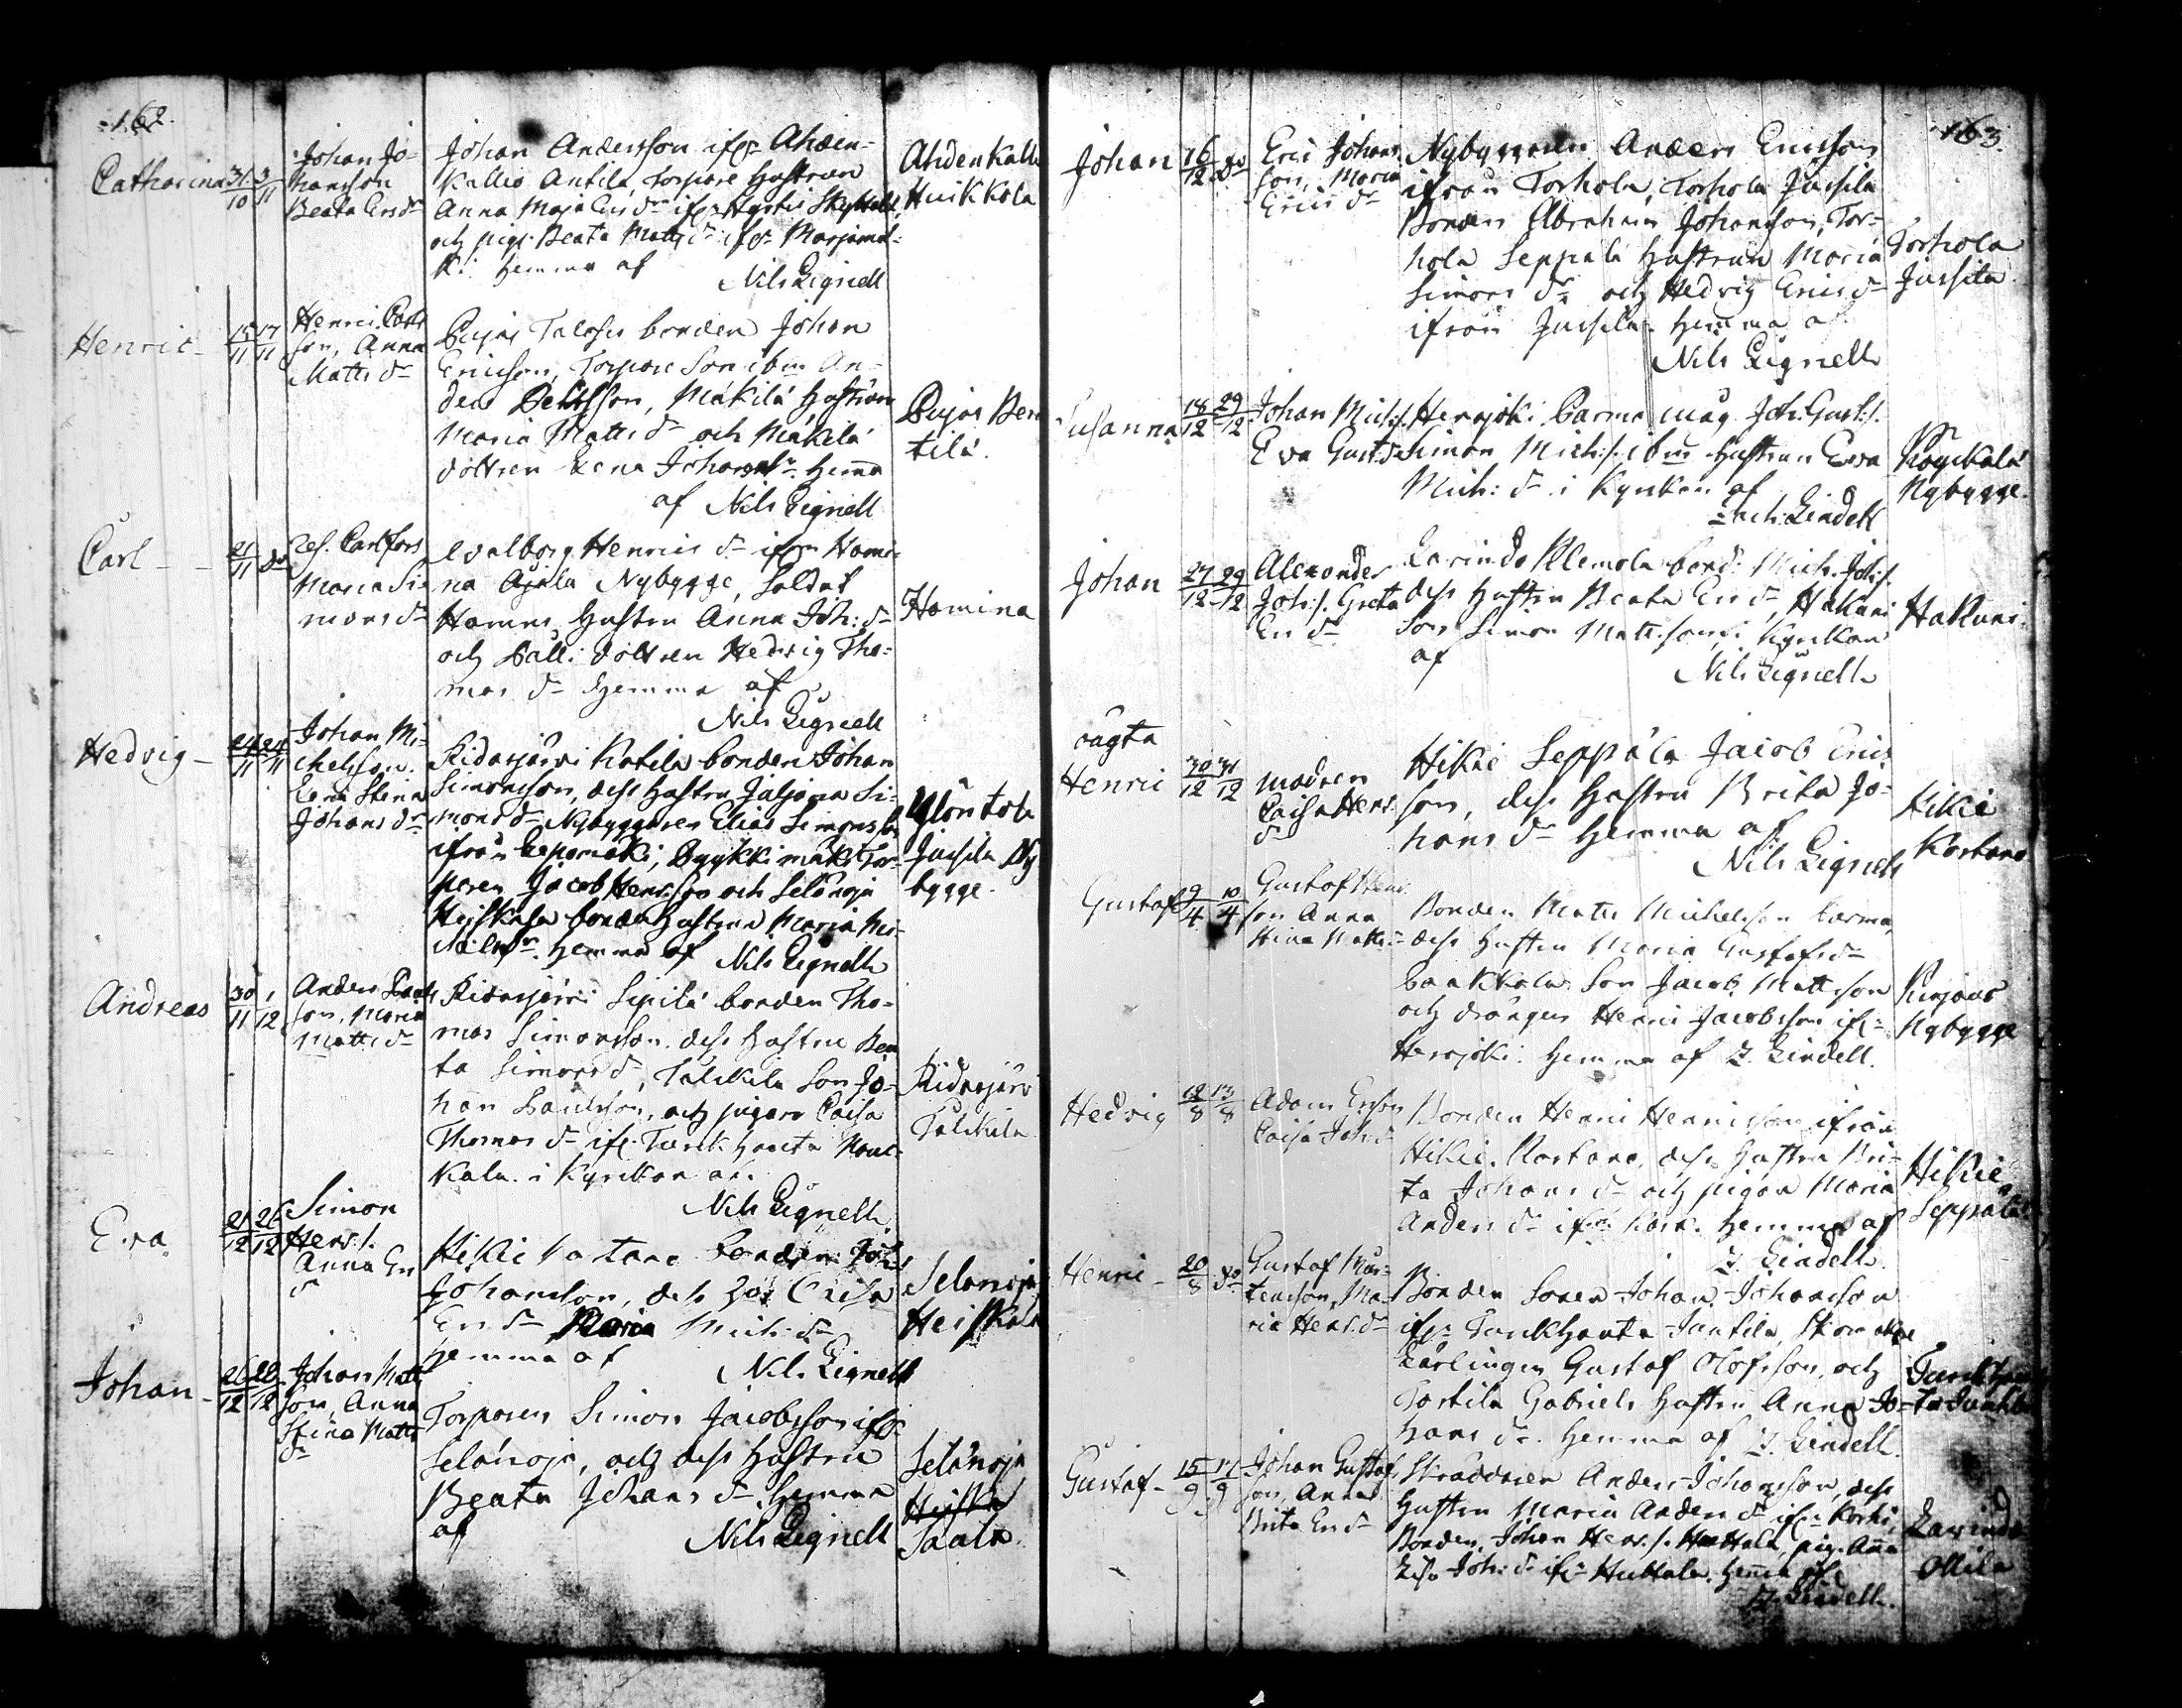 162.
Catharina 31/10 3/11
Johan Jo=
hansson
Beata Ers dr
Johan Andersson ifr Ahden=
kallio Antila, Torpare Hustrun
Anna Maja Ers dr ifr
och pig. Beata Matts dr ifr Marjamä=
ki. Hemma af
Nils Lignell
Ahdenkalli
Huikkola
Henric - 15/11 17/11
Henric Carls
son, Anna
Matts dr
Pajas Talpis bonden Johan
Ericsson, Torpare Son ibm An=
ders, Mäkilä Hustrun
Maria Matts dr och Mäkilä
dottren Lena Johans dr Hemma
af Nils Lignell
Pajas Ben
tilä.
Carl - - 21/11 do
Res. Carl Fors
Maria Si=
mons dr
Valborg Henrics dr ifrn Homi=
na Ajala Nybygge, Soldat
Hustru Anna Joh: dr
och Palli dottren Hedvig Tho=
mas dr Hemma af
Nils Lignell
Homina
Hedvig - 24/11 24/11
Johan Mi=
chelsson.
Lena Stina
Johans dr
Ridasjärvi Katila bonden Johan
Simonsson, dess Hustru Juljana Si=
mons dr Nybyggaren Elias Simonsson
ifrån Lepomäki, Pyykkimäki Tor=
paren Jacob Henr:sson och Selänoja
Heiskala bonde Hustrun Maria Mi=
chels dr. Hemma af Nils Lignell
Ylöntola
Jussila Ny
bygge.
Andreas 30/11 1/12
Anders Pauls
son, Maria
Matts dr
Ridasjärvi Sipilä bonden Tho=
mas Simonsson dess Hustru Bea
ta Simons dr, Talskila Son Jo=
han Paulsson, och pigan Caisa
Thomas dr ifr Turckhauta Nouc=
kala. i Kyrckan af.
Nils Lignell.
Ridasjärvi
Talskila
Eva. 21/12 26/12
Simon
Henr:s.
Anna Er
dr
Hikiä Kortano Bonden Joh:
Johansson, dess Caisa
Ers dr Maria Mich: dr
Hemma af
Nils Lignell
Selanoja
Heiskala
Johan - 26/12 28/12
Johan Matts
son, Anna
Stina Matts
dr
Torparen Simon Jacobsson ifr
Selänoja, och dess Hustru
Beata Johans dr Hemma
af
Nils Lignell
Selänoja
Heiska
Saala.
163.
Johan 16/12 do
Eric Johans
son, Maria
Erics dr
Nybyggaren Anders Ericsson
ifrån Torhola, Torhola Jussila
Bonden Abraham Johansson, Tor=
hola Seppälä Hustrun Maria
Simons dr och Hedvig Erics dr
ifrån Jussila. Hemma af
Nils Lignell
Torhola
Jussila
Susanna 18/12 29/12
Johan Mich:s.
Eva Gust. dr
Herajoki Parma måg Joh: Gust:s.
Simon Mich:s. ibm Hustrun Eva
Mich: dr i Kyrckan af
Lindell
Nybygge.
Johan 27/12 29/12
Alexander
Joh:s. Greta
Er dr
Lavindo Klemola bond. Mich. Joh:s.
dess Hustru Beata Ers dr, Hakuni
Son Simon Matts:son, i Kyrckan
af
Nils Lignell
Hakuni.
oägta
Henric 30/12 31/12
modren
Caisa Henr.
dr
Hikiä Seppälä Jacob Erics
son, dess Hustru Brita Jo=
hans dr Hemma af
Nils Lignell
Hikiä
Kortano
Gustaf 9/4 10/4
Gustaf Henr.
son Anna
Stina Matts dr
Bonden Matts Michelsson Parma,
dess Hustru Maria Gustafs dr
Paakkola Son Jacob Mattsson
och drängen Henric Jacobsson ifr
Herajoki. Hemma af J. Lindell.
Nybygge
Hedvig 12/8 13/8
Adam Ersson
Caisa Joh: dr
Bonden Henric Henricsson ifrån
Hikiä Kortano, dess Hustru Bri=
ta Johans dr och pigan Maria
Anders dr ifrn Kork. Hemma af
J. Lindell.
Hikiä
Seppälä
Henric - 20/8 do
Gustaf Mår=
tensson, Ma=
ria Henr. dr
Bonden Sonen Johan Johansson
ifr Turckhauta Junttila, Skomakare
Lärlingen Gustaf Olofsson, och
Tortila Gabriels Hustru Anna Jo=
hans dr. Hemma af J. Lindell.
Turckhau=
ta Junttila
Gustaf - 15/9 17/9
Johan Gustafs
son, Anna
Brita Ers dr
Skräddaren Anders Johansson, dess
Hustru Maria Anders dr ifr Korki,
Bonden Johan Henr:s. Huttula, pig. Anna
Lisa Joh: dr ifr Huttula. Hema af
J. Lindell.
Lavindo
Ollila